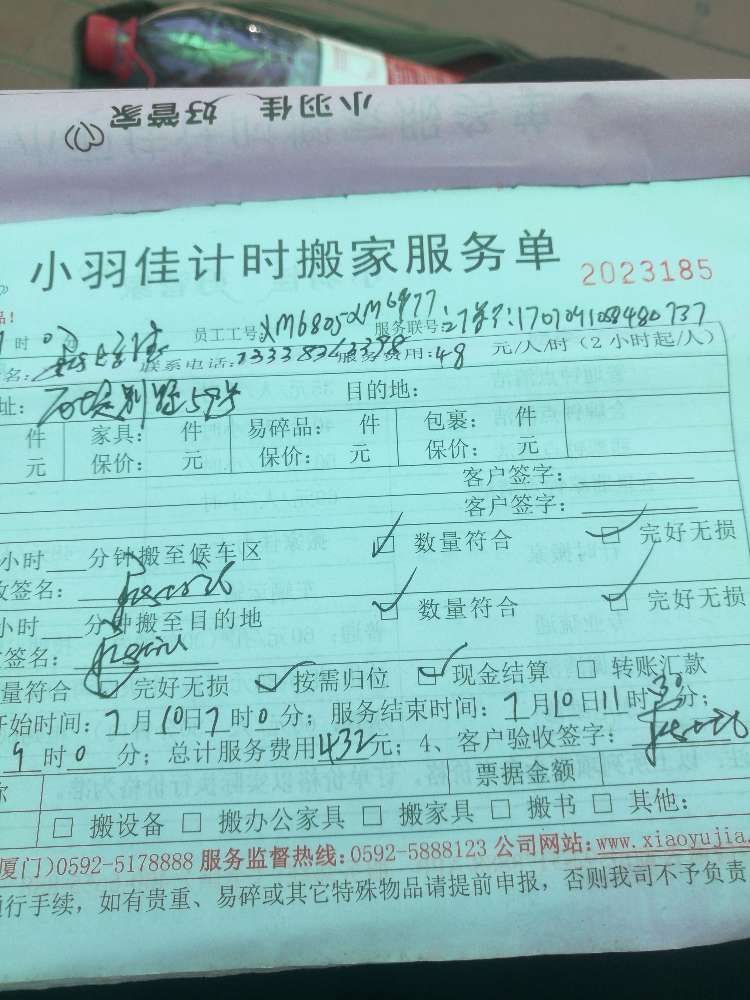 小羽佳 好管家
小羽佳计时搬家服务单 2023185
品!
时 0 员工工号:XM6805 XM6977 服务联号:订单号:1707091058480737
名: 联系电话: 服务费用:48 元/人/时(2小时起/人)
址: 别墅59号 目的地:
件 家具: 件 易碎品: 件 包裹: 件
元 保价: 元 保价: 元 保价: 元
客户签字:
客户签字:
小时 分钟搬至候车区 ☑ 数量符合 ☑ 完好无损
收签名:
小时 分钟搬至目的地 ☑ 数量符合 ☑ 完好无损
签名:
量符合 ☑ 完好无损 ☑ 按需归位 ☑ 现金结算 □ 转账汇款
开始时间:7月10日7时0分;服务结束时间:7月10日11时30分;
9时0分;总计服务费用432元;4、客户验收签字:
称 票据金额
□ 搬设备 □ 搬办公家具 □ 搬家具 □ 搬书 □ 其他:
厦门)0592-5178888 服务监督热线:0592-5888123 公司网站:www.xiaoyujia.
行手续,如有贵重、易碎或其它特殊物品请提前申报,否则我司不予负责